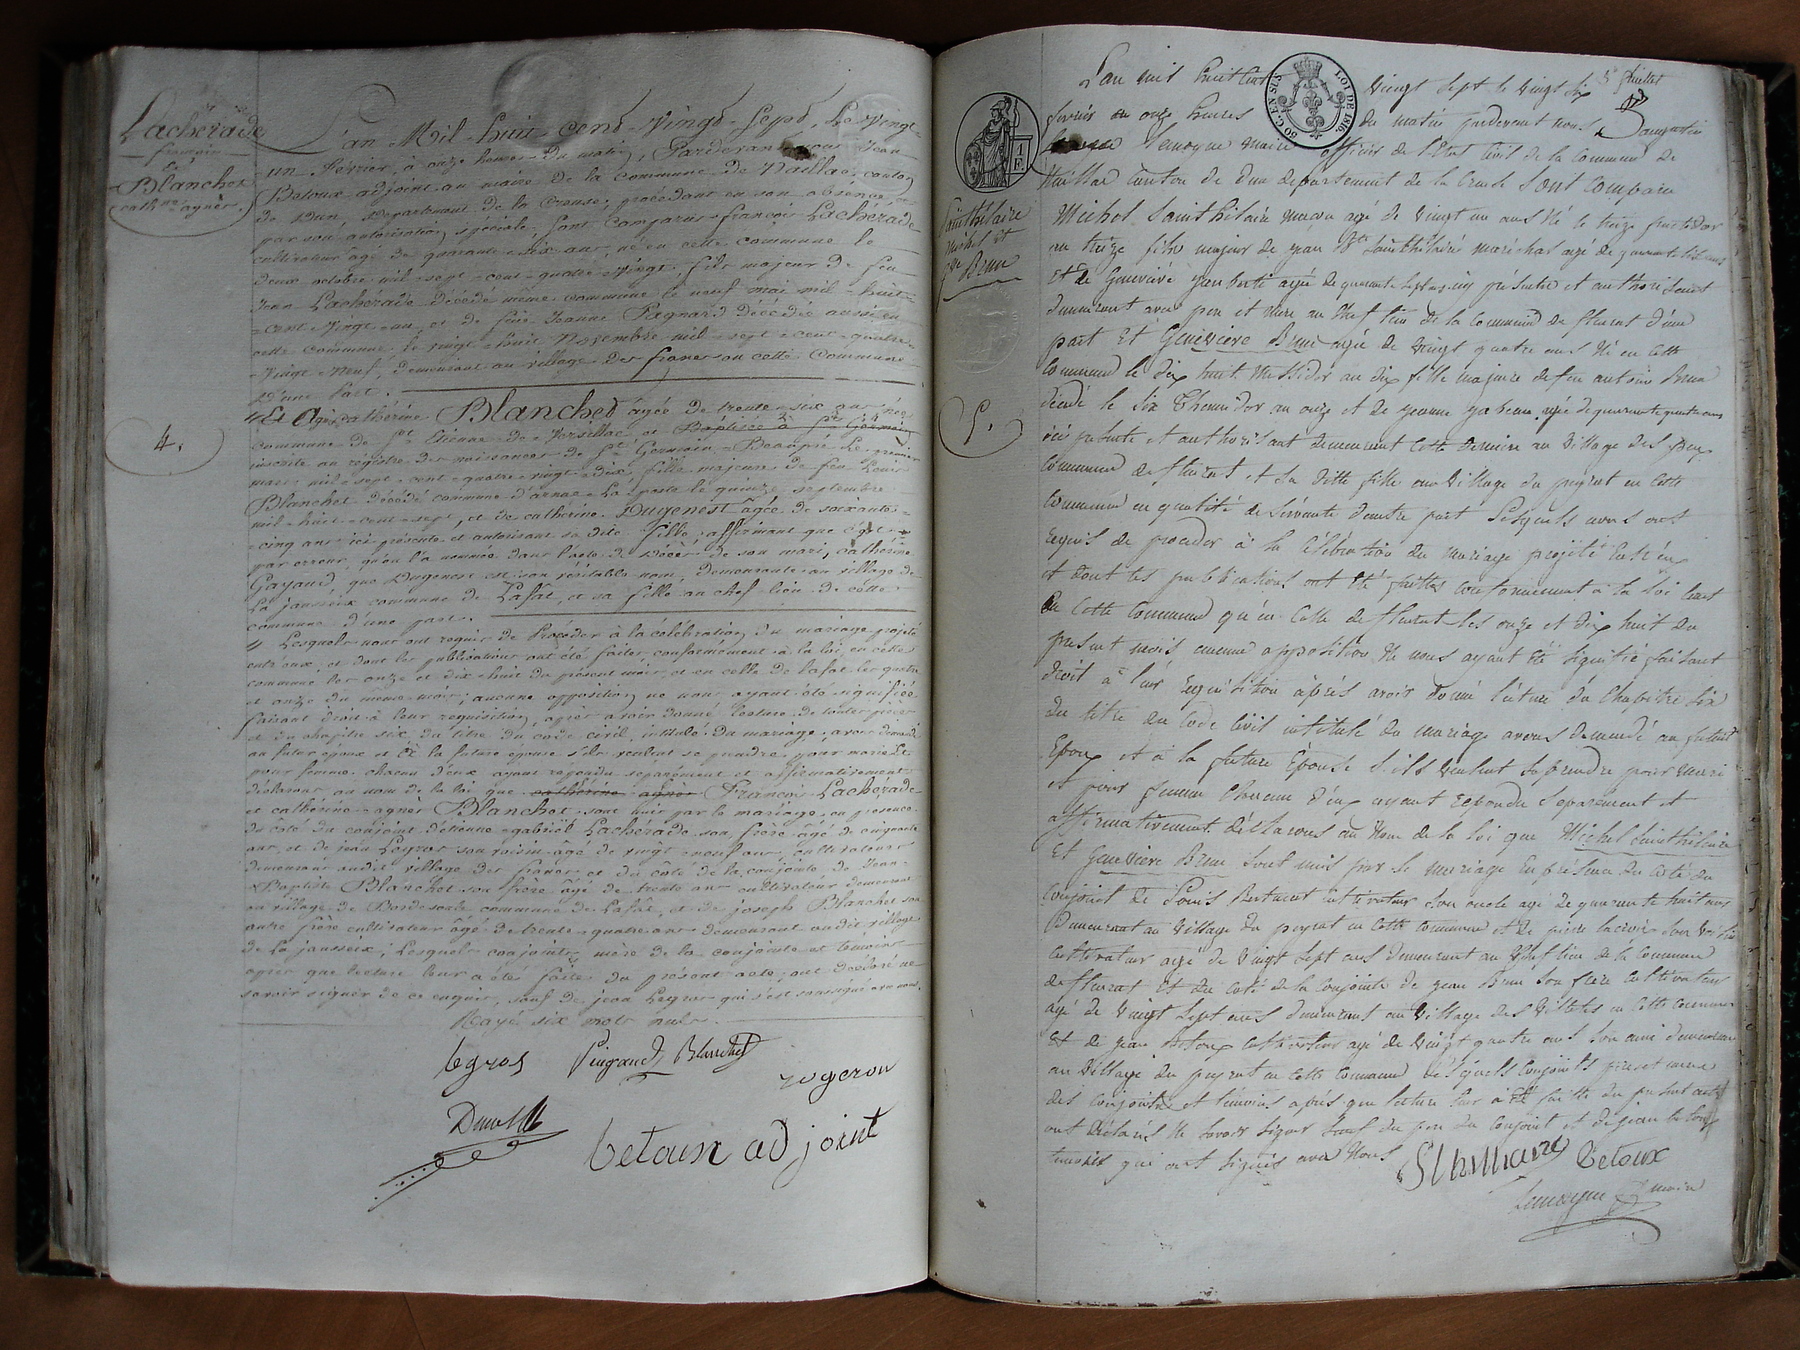 Lacherade
françois
et
Blanchet
cath.ne agnès.
4.
L'an Mil-huit-cent-Vingt-Sept, Le Vingt-
un Février, à onze heures du matin, Pardevant nous Jean
Betoux adjoint au maire de la commune de Naillac, canton
de Dun, Département de la Creuse, procédant en son absence, et
par son autorisation spéciale, sont comparus françois Lacherade
cultivateur âgé de quarante-six ans, né en cette commune le
deux octobre mil-sept-cent-quatre-vingt, fils majeur de feu
Jean Lacherade décédé même commune le neuf mai mil-huit-
-cent-vingt-un, et de feue Jeanne Pagnard décédée aussi en
cette commune le vingt-huit Novembre mil-sept-cent-quatre-
-vingt-Neuf, demeurant au village des franes en cette Commune
d'une part.
Et Agnès Cathérine Blanchet âgée de trente-six ans née
commune de St Etienne de Versillac et Baptisée à St Germain
inscrite au registre des naissances de St Germain-Beaupré Le premier
mars mil-sept-cent-quatre-vingt-dix, fille majeure de feu Louis
Blanchet décédé commune d'arnac-La-poste le quinze septembre
mil-huit-cent-sept, et de catherine Dugenest âgée de soixante-
-cinq ans ici présente et autorisant sa dite fille, affirmant que c'est
par erreur qu'on l'a nommée dans l'acte de décès de son mari, cathérine
Gayaud, que Dugenest est son véritable nom, demeurante au village de
La jausseix commune de Lafat, et sa fille au chef-lieu de cette
commune d'une part.
Lesquels nous ont requis de Procéder à la célébration du mariage projeté
entr'eux, et dont les publications ont été faites conformément à la loi en cette
commune les onze et dix-huit du présent mois, et en celle de Lafat les quatre
et onze du même mois; aucune opposition ne nous ayant été signifiée
faisant droit à leur requisition, après avoir donné lecture de toutes pièces
et du chapitre six du titre du code civil, intitulé du mariage, avons demandé
au futur époux et à la future épouse s'ils veulent se prendre pour mari et
pour femme, chacun d'eux ayant répondu séparément et affirmativement
déclarons au nom de la loi que cathérine agnès François Lacherade
et cathérine-agnès Blanchet sont unis par le mariage en présence
du côté du conjoint d'étienne-gabriël Lacherade son frère âgé de cinquante
ans, et de jean Legros son voisin âgé de vingt-neuf ans cultivateurs
demeurant audit village des franes et du côté de la conjointe, de Jean-
-Baptiste Blanchet son frère âgé de trente ans cultivateur demeurant
au village de Bordesoule commune de Lafat, et de joseph Blanchet son
autre frère cultivateur âgé de trente-quatre ans demeurant audit village
de La jausseix, Lesquels conjoints, mère de la conjointe et témoins
après que lecture leur a été faite du présent acte, ont déclaré ne
savoir signer de ce enquis, sauf de jean Legros qui s'est soussigné avec nous.
Rayé six mots nuls.
legros Blanchet
rogeron
betoux adjoint
Sainthilaire
Michel et
Brun
5.
L'an mil huit cent vingt Sept le vingt six
février à onze heures du matin pardevant nous
Lemoyne Maire officier de l'Etat Civil de la Commune de
Naillac Canton de Dun département de la Creuse Sont Comparu
Michel Sainthilaire maçon agé de Vingt un ans Né le treize
an treize fils majeur de jean Bte Sainthilaire maréchal agé de
Et de Genevieve agée de quarante sept ans ici présents et authorisant
demeurant avec pere et mere au Chef lieu de la Commune de fleurat d'une
part Et Genevieve Brun agée de Vingt quatre ans Né en Cette
Commune le dix huit Messidor an dix fille majeure de feu antoine Brun
décédé le Six Thermidor an onze et de jeanne agée de quarante quatre ans
ici presente et authorisant demeurant Cette derniere au Village des
Commune de fleurat et Sa ditte fille au Village du peyrat en Cette
Commune en quallité de Servante d'autre part Lesquels nous ont
Requis de proceder à la Célébration du Mariage projetté Entr'eux
et dont les publications ont été faittes conformement à la loi tant
En Cette Commune qu'en Celle de fleurat les onze et dix huit du
présent mois aucune opposition Ne nous ayant été Signifié faisant
droit à leur Requisition après avoir donné lecture du Chapitre Six
du titre du Code Civil intitulé du mariage avons demandé au futur
Epoux et à la future Epouse S'ils Veulent se prendre pour mari
et pour femme Chacun d'eux ayant Repondu Separement et
affirmativement déclarons au Nom de la loi que Michel Sainthilaire
Et Genevieve Brun Sont unis par le mariage En présence du Coté du
Conjoint de Louis cultivateur Son oncle agé de quarante huit ans
Demeurant au Village du peyrat en Cette Commune et de pierre Son Voisin
Cultivateur agé de Vingt Sept ans demeurant au Chef lieu de la Commune
de fleurat Et du Coté de la Conjointe de jean Brun Son frere Cultivateur
agé de Vingt Sept ans demeurant au Village des en Cette Commune
Et de jean Betoux Cultivateur agé de Vingt quatre ans Son ami demeurant
au Village du peyrat en Cette Commune Lesquels Conjoints pere et mere
des Conjoints et temoins après que lecture leur a Eté faitte du présent acte
ont déclaré Ne Savoir Signer Sauf du pere du Conjoint et de jean Betoux
temoins qui ont Signés avec Nous
Sthillaire Betoux
Lemoyne maire
30 C. EN SUS
LOI DE 1816
1 F.